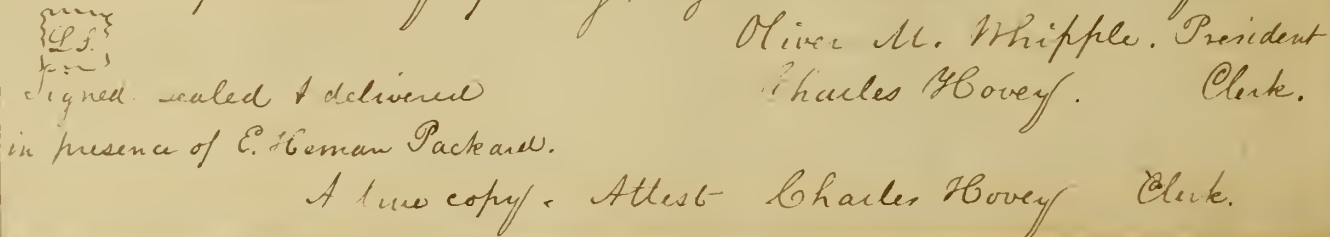 L.S.
Oliver M. Whipple. President
Signed sealed & delivered Charles Hovey. Clerk.
in presence of E. Heman Packard.
A true copy. Attest Charles Hovey Clerk.